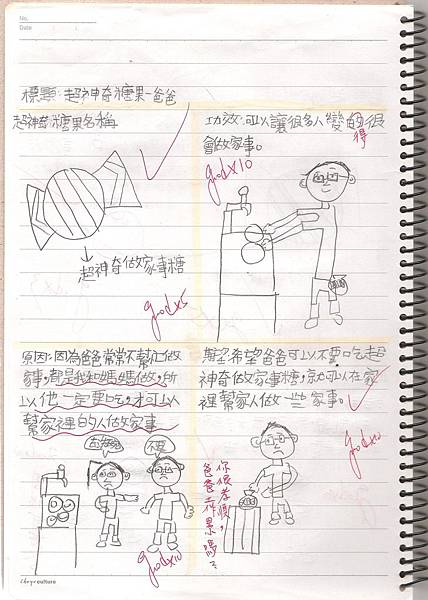 No.
Date
標題：超神奇糖果-爸爸
超神奇糖果名稱
超神奇做家事糖
good x5
功效：可以讓很多人變的很
得
會做家事。
good x10
原因：因為爸爸常常不幫忙做
家事，都是我和媽媽做，所
以他一定要吃，才可以
幫家裡的人做家事
去做家事
不要
good x10
期望：希望爸爸可以不要吃超
神奇做家事糖，就可以在家
裡幫家人做一些家事。
你很孝順，
爸爸
嗎？
culture